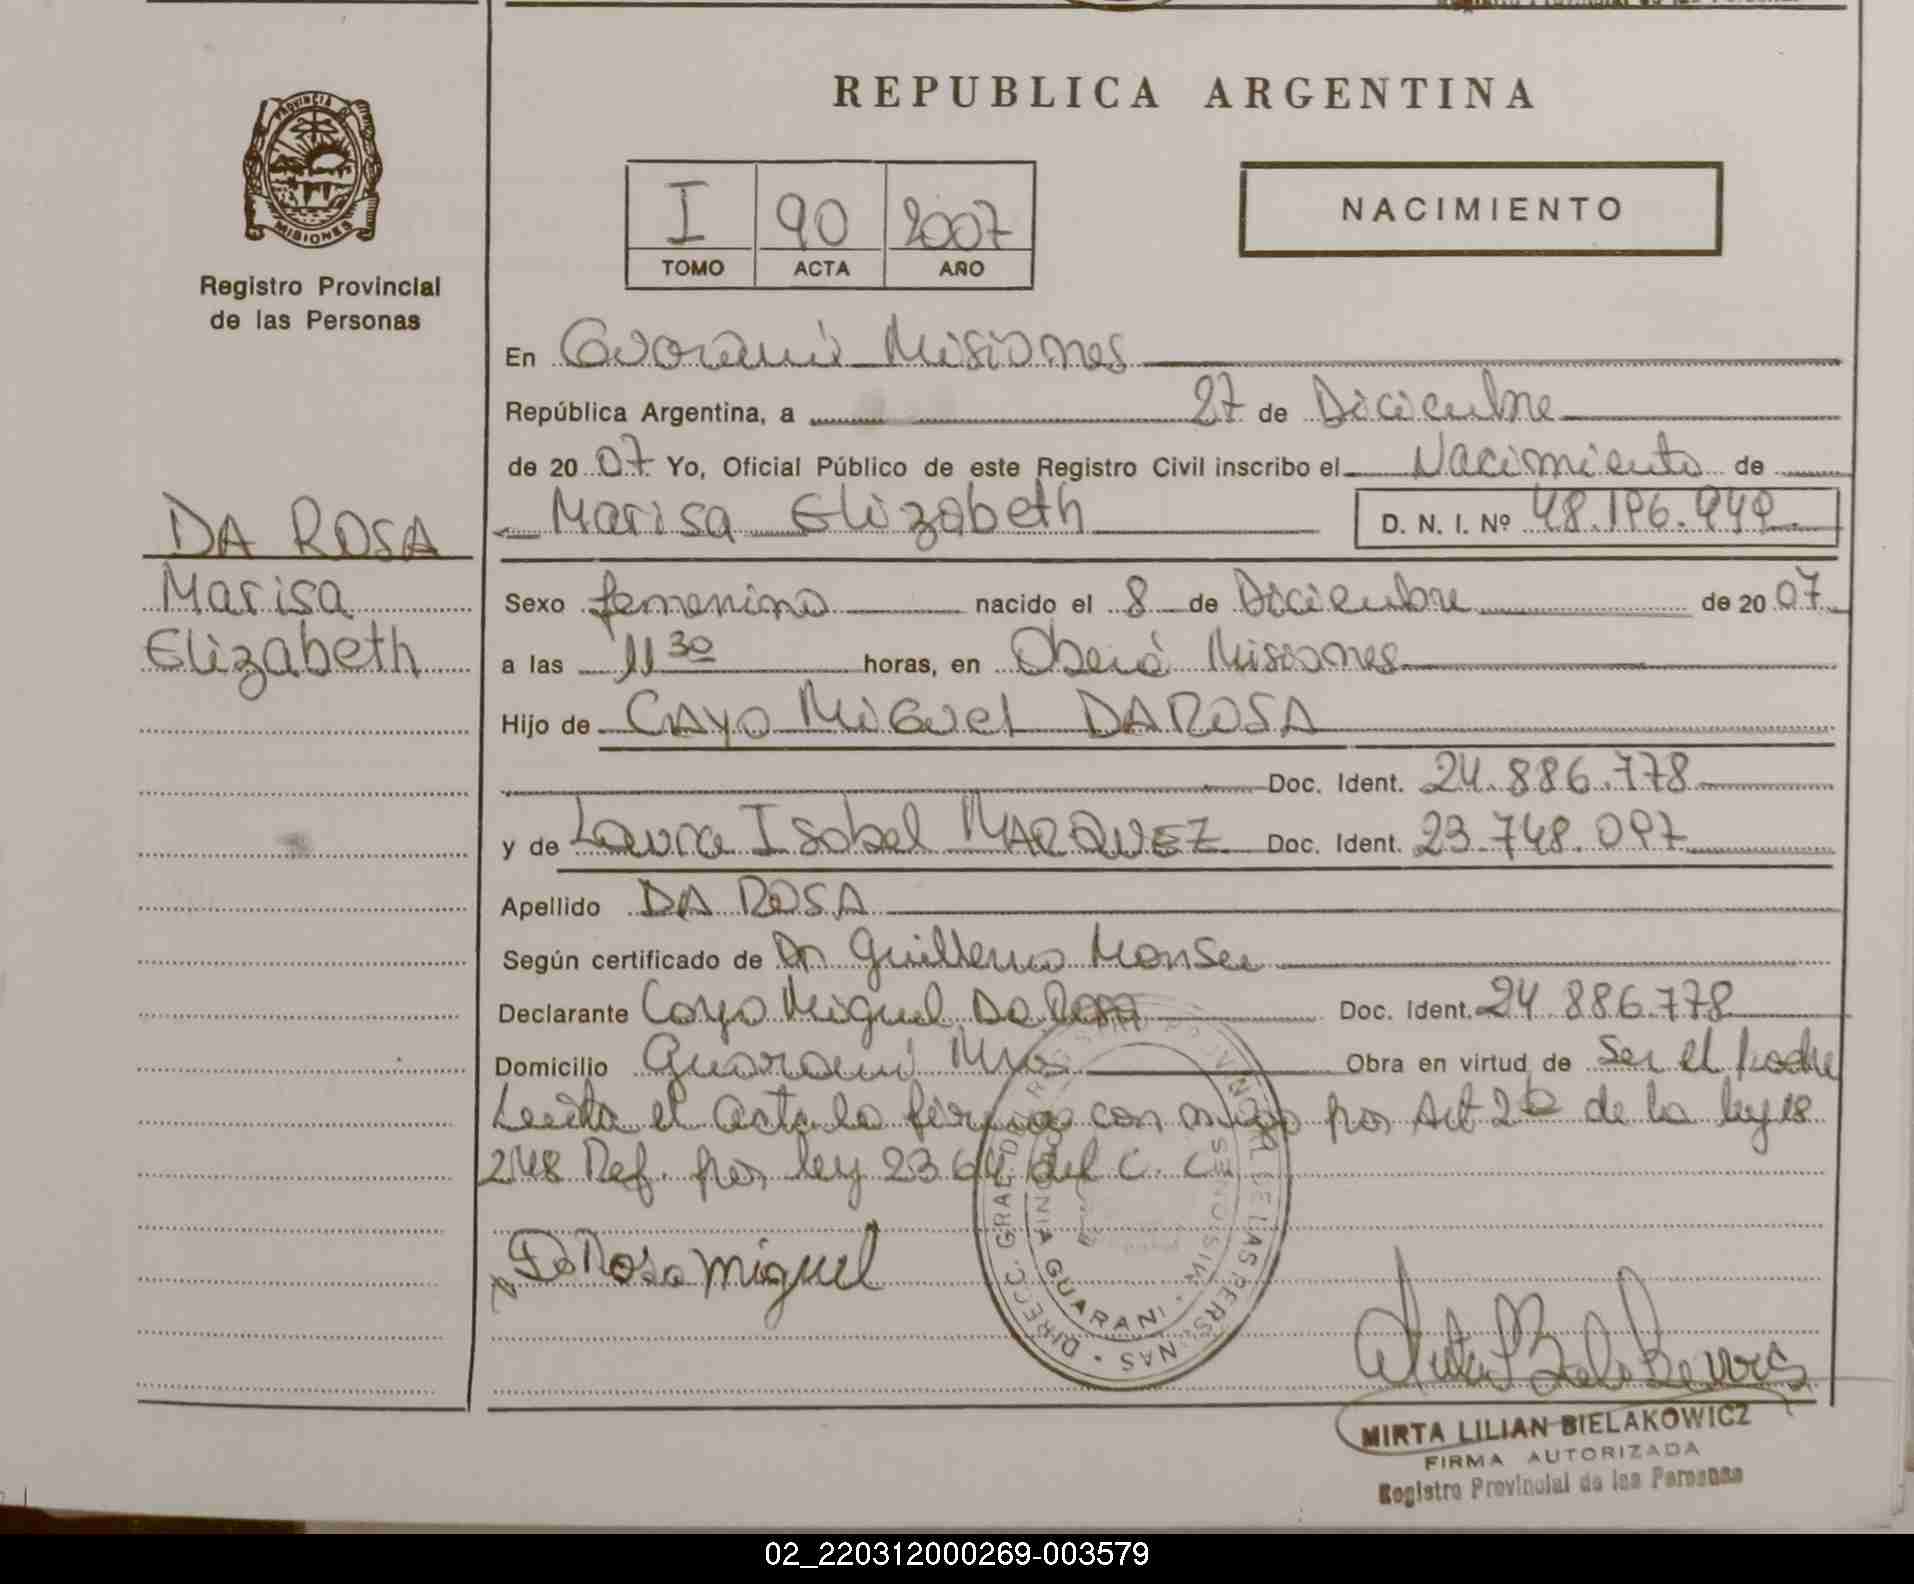 REPUBLICA ARGENTINA
PROVINCIA DE MISIONES
Registro Provincial
de las Personas
I 90 2007
TOMO ACTA AÑO
NACIMIENTO
En Guaraní Misiones
República Argentina, a 27 de Diciembre
de 2007 Yo, Oficial Público de este Registro Civil inscribo el Nacimiento de
Marisa Elizabeth D. N. I. Nº
DA ROSA
Marisa
Elizabeth
Sexo femenino nacido el 8 de Diciembre de 2007
a las 11 30 horas, en Oberá Misiones
Hijo de CAYO MiGuel DA ROSA
Doc. Ident. 24.886.778
y de Laura Isabel MARQUEZ Doc. Ident. 23.748.097
Apellido DA ROSA
Según certificado de Dr Guillermo
Declarante Cayo Miguel Da Rosa Doc. Ident. 24 886.778
Domicilio Guaraní Mnes Obra en virtud de ser el padre
Leída el acta la firma con migo por Art 2 de la ley 18
248 Ref. por ley 23 del C. C.
Da Rosa miguel
DIRECC. GRAL. DE LAS PERSONAS
GUARANI MISIONES
MIRTA LILIAN BIELAKOWICZ
FIRMA AUTORIZADA
Registro Provincial de las Personas
02_220312000269-003579